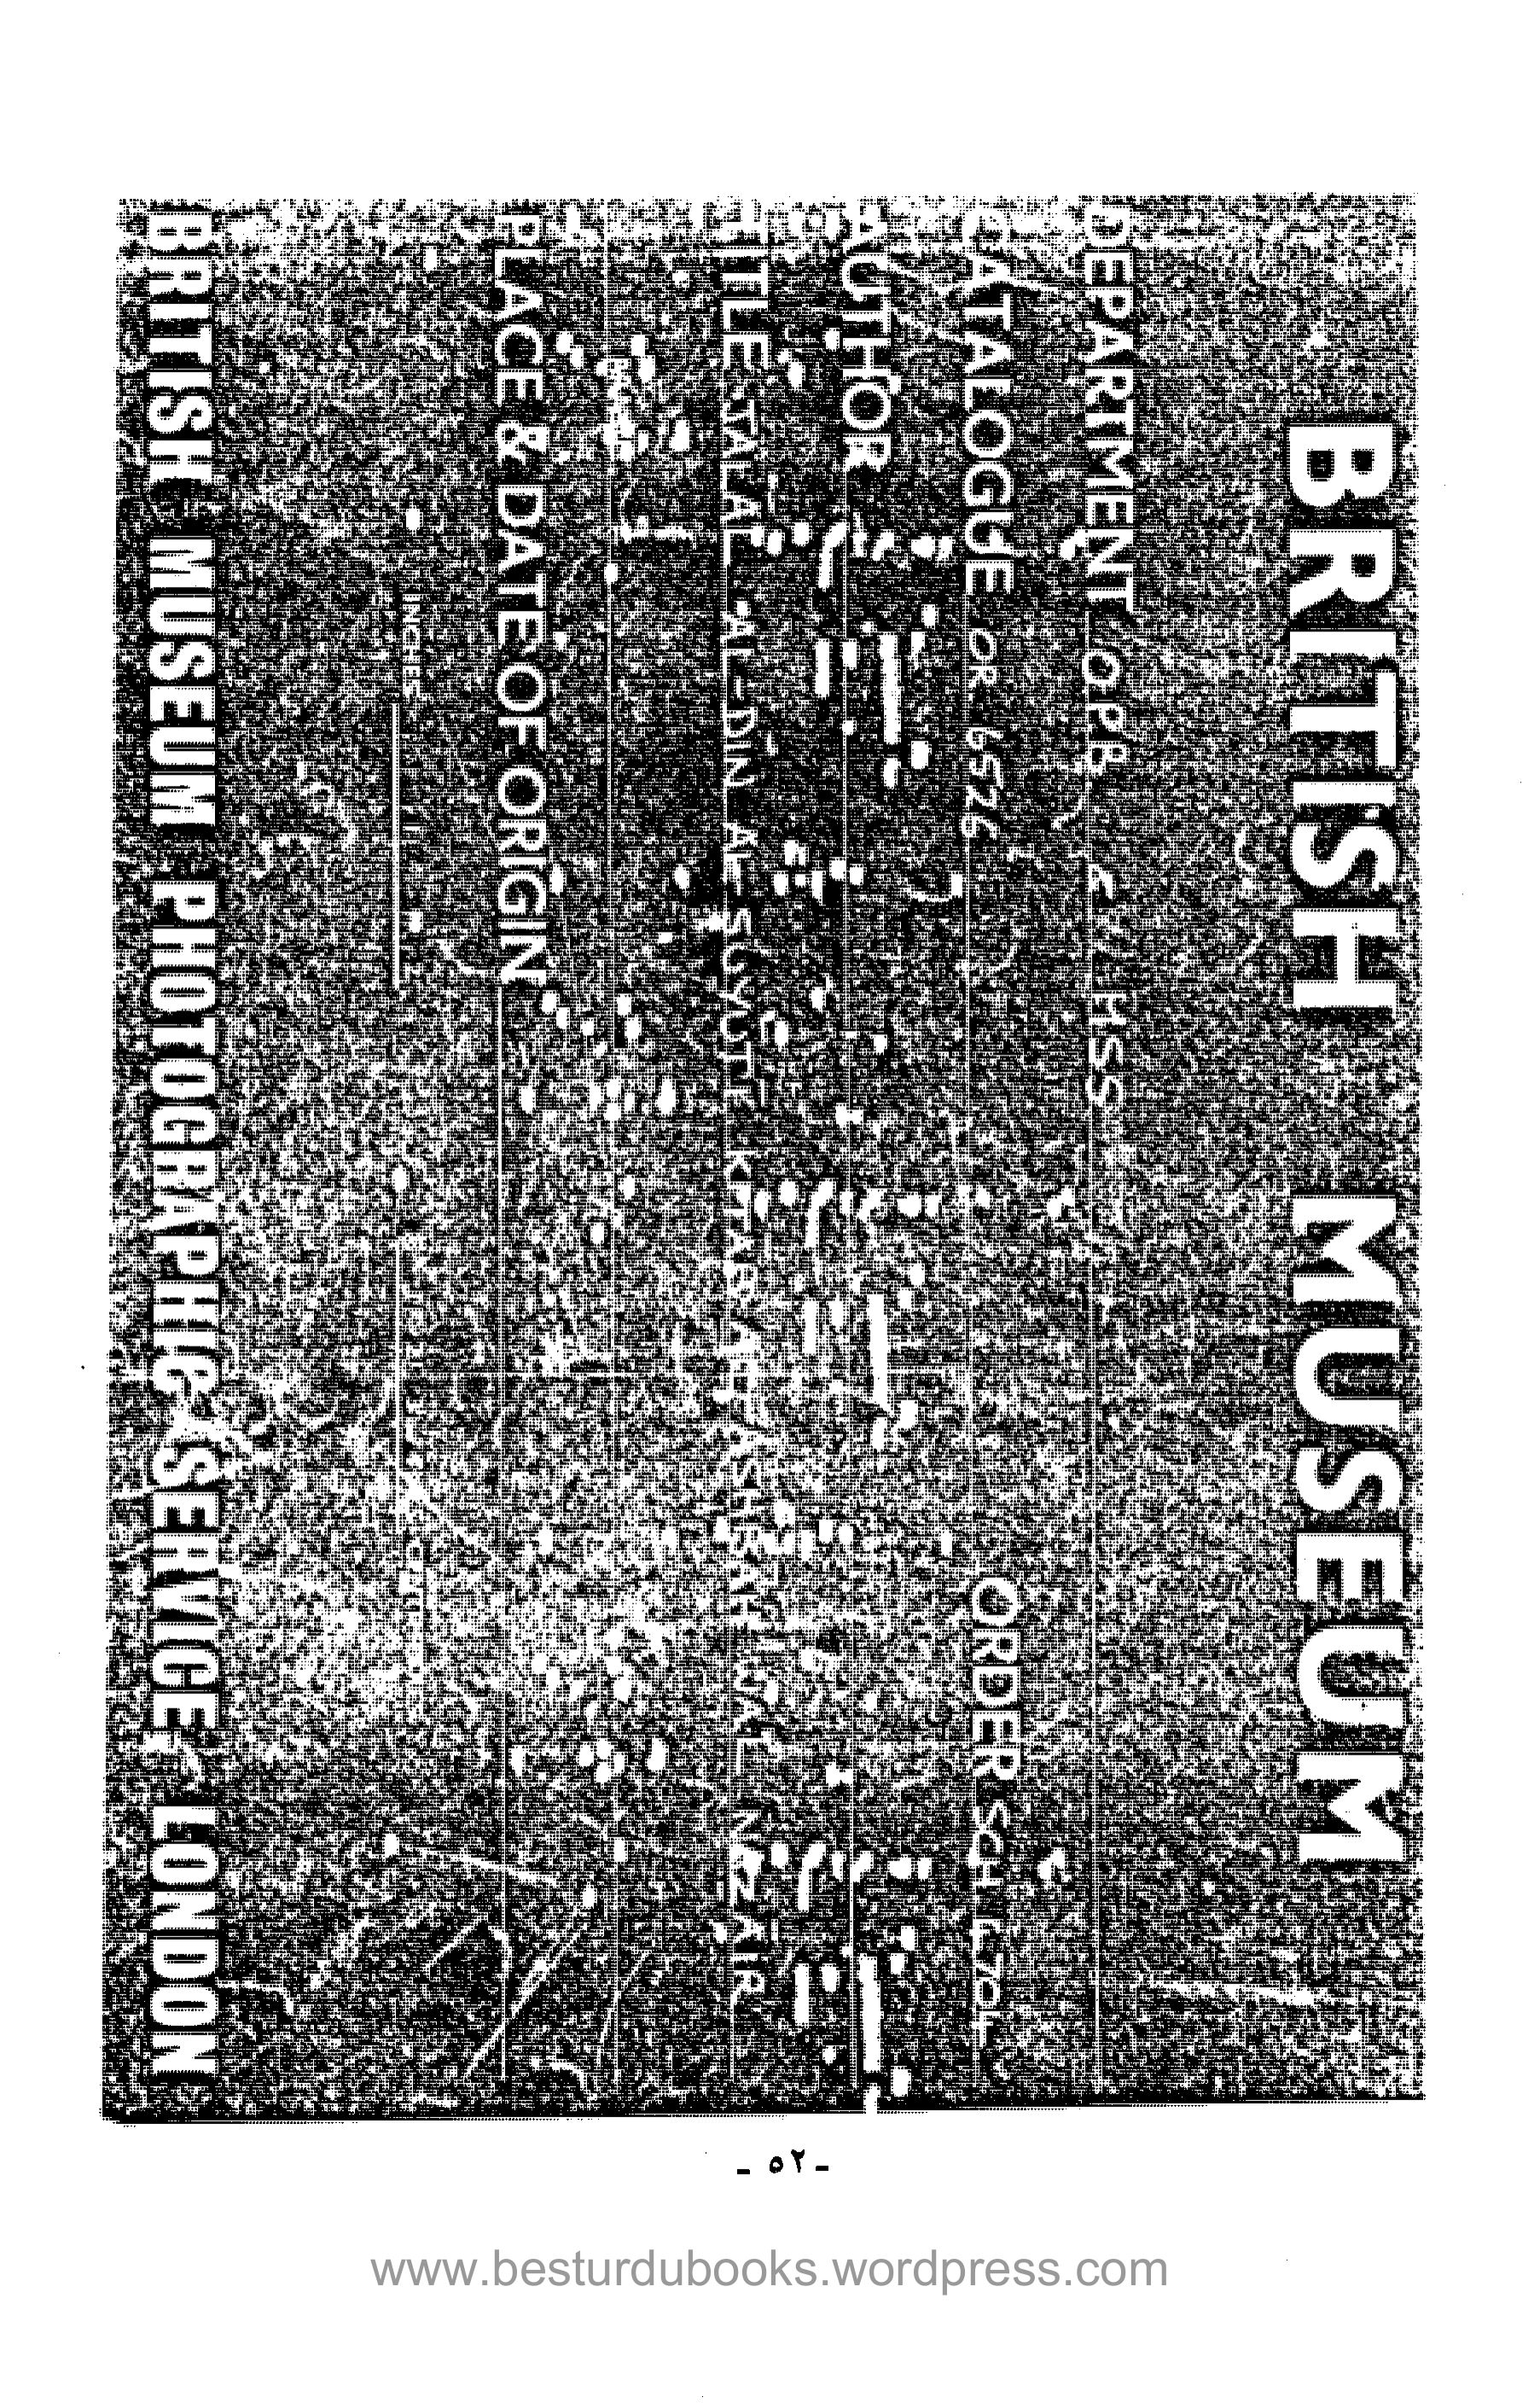 BRITISH MUSEUM
DEPARTMENT OPB MSS
CATALOGUE OR 6526 ORDER SCH
AUTHOR
TITLE JALAL AL-DIN AL-SUYUTI KITAB AL-ASHBAH WAL NAZAIR
PLACE & DATE OF ORIGIN
INCHES
BRITISH MUSEUM PHOTOGRAPHIC SERVICE, LONDON
- ٥٢ -
www.besturdubooks.wordpress.com